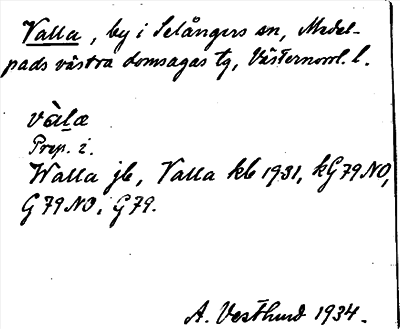 Valla, by i Selångers sn, Medel-
pads västra domsagas tg, Västernorrl. l.
vàlæ
Prep. i.
Walla jb, Valla kb 1931, kG79NO,
G79NO, G79.
A. Vestlund 1934.